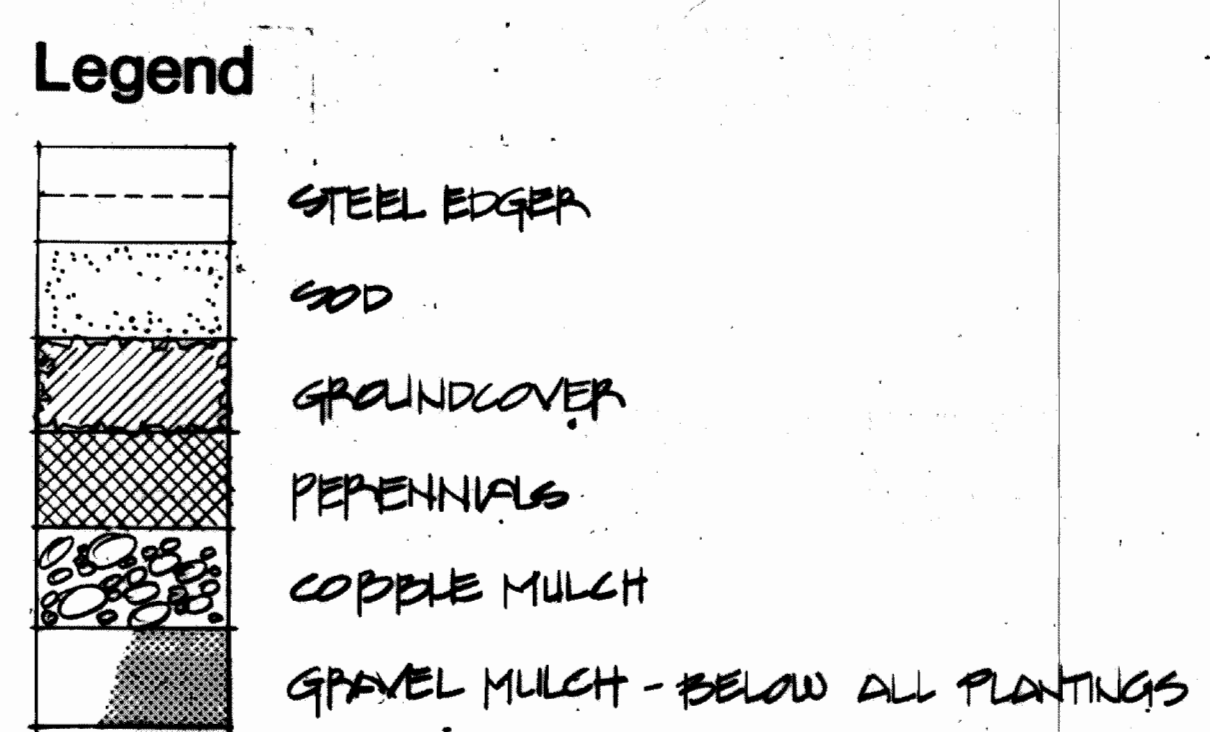 Legend
STEEL EDGER
SOD
GROUNDCOVER
PERENNIALS
COBBLE MULCH
GRAVEL MULCH - BELOW ALL PLANTINGS